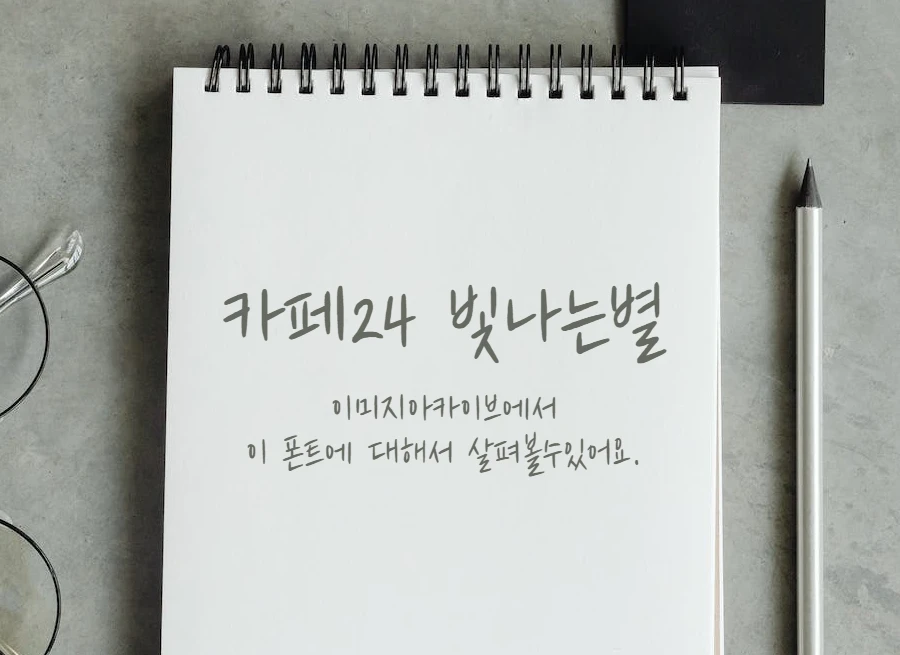 카페24 빛나는별
이미지아카이브에서
이 폰트에 대해서 살펴볼수있어요.